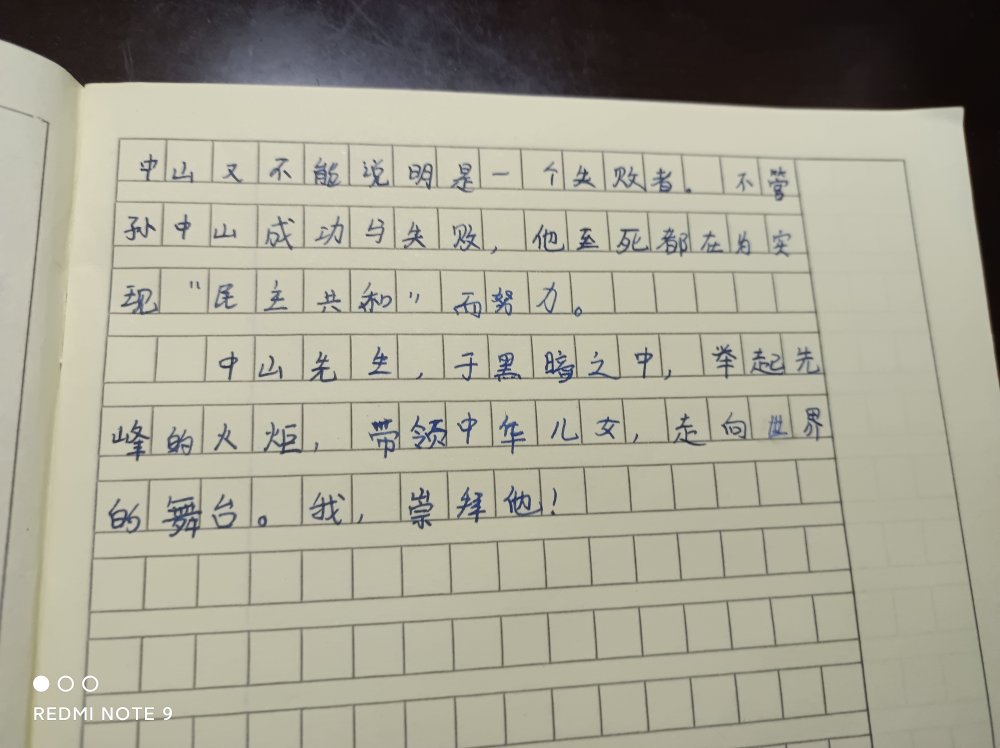 中山又不能说明是一个失败者。不管
孙中山成功与失败，他至死都在为实
现“民主共和”而努力。
中山先生，于黑暗之中，举起先
峰的火炬，带领中华儿女，走向世界
的舞台。我，崇拜他！
REDMI NOTE 9